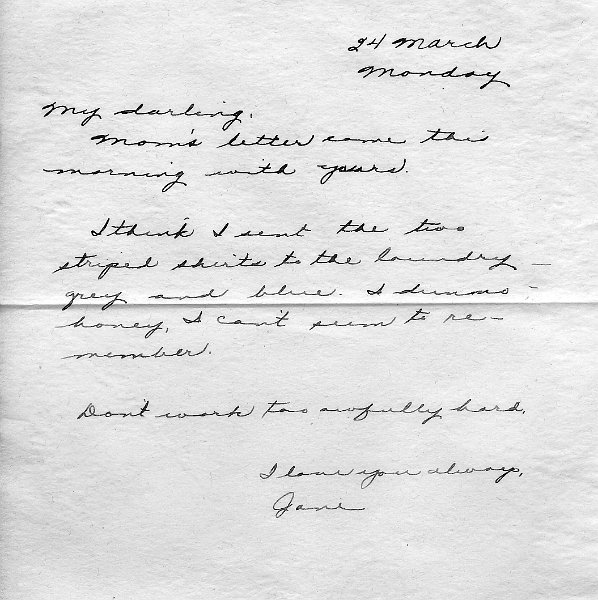 24 March
Monday
My darling,
Mom's letter came this
morning with yours.
I think I sent the two
striped shirts to the laundry –
grey and blue. I dunno –
honey, I can't seem to re–
member.
Don't work too awfully hard.
I love you always,
Jane